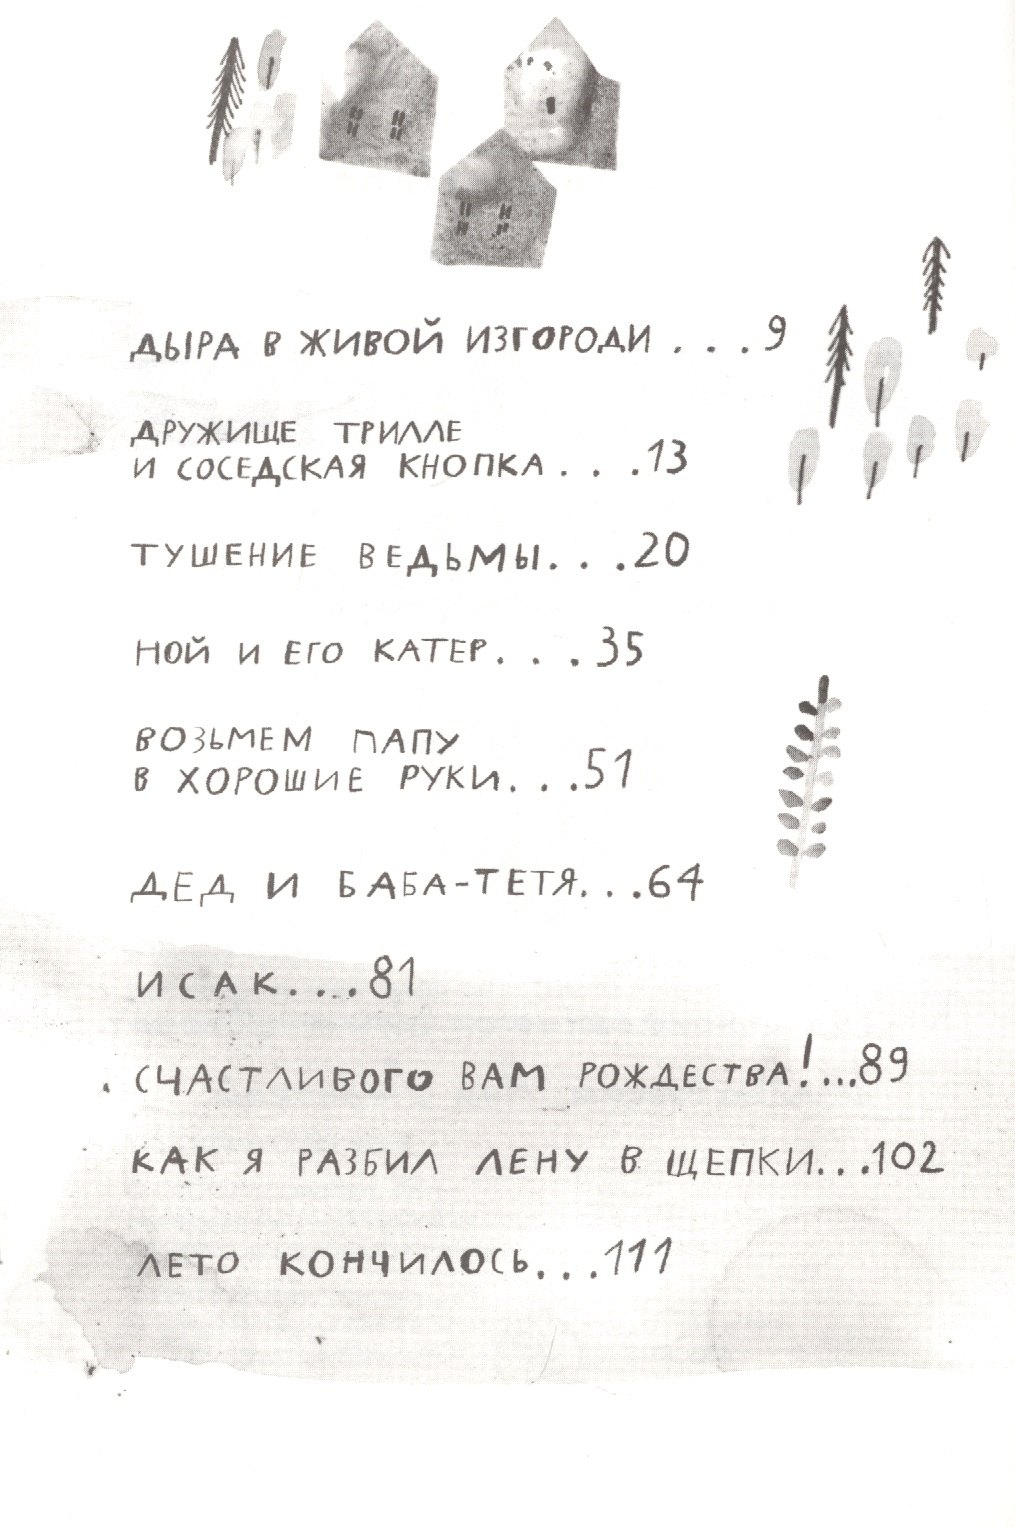 ДЫРА В ЖИВОЙ ИЗГОРОДИ . . . 9
ДРУЖИЩЕ ТРИЛЛЕ
И СОСЕДСКАЯ КНОПКА . . . 13
ТУШЕНИЕ ВЕДЬМЫ. . . 20
НОЙ И ЕГО КАТЕР. . . 35
ВОЗЬМЕМ ПАПУ
В ХОРОШИЕ РУКИ. . . 51
ДЕД И БАБА-ТЕТЯ. . . 64
ИСАК. . . . 81
СЧАСТЛИВОГО ВАМ РОЖДЕСТВА!...89
КАК Я РАЗБИЛ ЛЕНУ В ЩЕПКИ...102
ЛЕТО КОНЧИЛОСЬ. . . 111